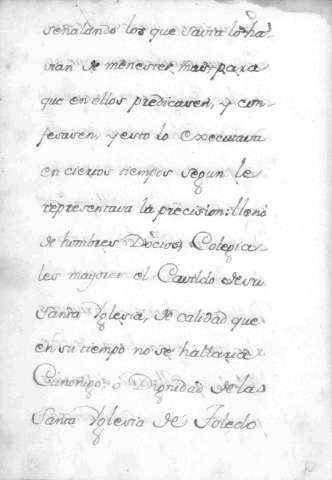 señalando los que savia los ha-
vian de menester mas, para
que en ellos predicasen, y con-
fesasen, y esto lo executava
en ciertos tiempos segun le
representava la precision: llenó
de hombres Doctos, Colegia
les mayores el Cavildo de su
Santa Yglesia, de calidad que
en su tiempo no se hallaria
Canonigo, ó Dignidad de la
Santa Yglesia de Toledo